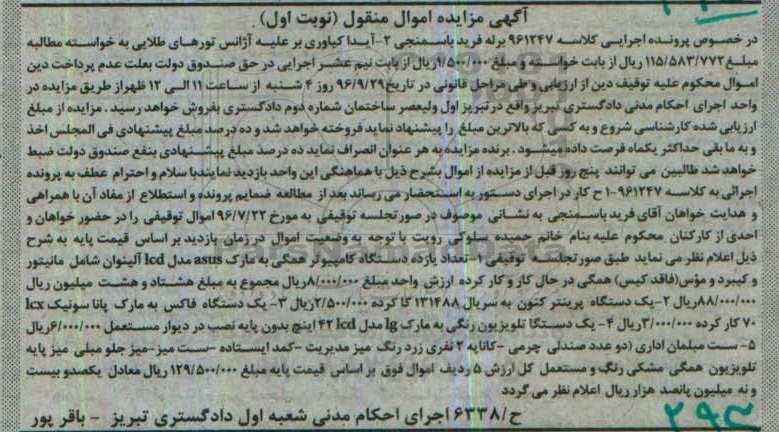 آگهی مزایده اموال منقول (نوبت اول)
در خصوص پرونده اجرایی کلاسه ۹۶۱۲۴۷ برله فرید باسمنجی ۲-آیدا کیاوری بر علیه آژانس تورهای طلایی به خواسته مطالبه
مبلغ ۱۱۵/۵۸۳/۷۷۲ ریال از بابت خواسته و مبلغ ۱/۵۰۰/۰۰۰ریال از بابت نیم عشر اجرایی در حق صندوق دولت بعلت عدم پرداخت دین
اموال محکوم علیه توقیف دین از ارزیابی و طی مراحل قانونی در تاریخ ۹۶/۹/۲۹ روز ۴ شنبه از ساعت ۱۱ الی ۱۲ ظهر از طریق مزایده در
واحد اجرای احکام مدنی دادگستری تبریز واقع در تبریز اول ولیعصر ساختمان شماره دوم دادگستری بفروش خواهد رسید . مزایده از مبلغ
ارزیابی شده کارشناسی شروع و به کسی که بالاترین مبلغ را پیشنهاد نماید فروخته خواهد شد و ده درصد مبلغ پیشنهادی فی المجلس اخذ
و به ما بقی حداکثر یکماه فرصت داده میشود . برنده مزایده به هر عنوان انصراف نماید ده درصد مبلغ پیشنهادی بنفع صندوق دولت ضبط
خواهد شد طالبین می توانند پنج روز قبل از مزایده از اموال بشرح ذیل با هماهنگی این واحد بازدید نمایند با سلام و احترام عطف به پرونده
اجرائی به کلاسه ۹۶۱۲۴۷-۱ ح کار در اجرای دستور به استحضار می رساند بعد از مطالعه ضمایم پرونده و استطلاع از مفاد آن با همراهی
و هدایت خواهان آقای فرید باسمنجی به نشانی موصوف در صورتجلسه توقیفی به مورخ ۹۶/۷/۲۲ اموال توقیفی را در حضور خواهان و
احدی از کارکنان محکوم علیه بنام خانم حمیده سلوکی رویت با توجه به وضعیت اموال در زمان بازدید بر اساس قیمت پایه به شرح
ذیل اعلام نظر می نماید طبق صورتجلسه توقیفی ۱-تعداد یازده دستگاه کامپیوتر همگی به مارک asus مدل lcd آلینوان شامل مانیتور
و کیبرد و مؤس(فاقد کیس) همگی در حال کار و کار کرده ارزش واحد مبلغ ۸/۰۰۰/۰۰۰ریال مجموع به مبلغ هشتاد و هشت میلیون ریال
۸۸/۰۰۰/۰۰۰ریال ۲-یک دستگاه پرینتر کنون به سریال ۱۳۱۴۸۸ کا کرده ۲/۵۰۰/۰۰۰ریال ۳- یک دستگاه فاکس به مارک پانا سونیک lcx
۷۰ کار کرده ۳/۰۰۰/۰۰۰ریال ۴- یک دستگا تلویزیون رنگی به مارک lg مدل lcd ۴۲ اینچ بدون پایه نصب در دیوار مستعمل ۶/۰۰۰/۰۰۰ریال
۵- ست مبلمان اداری (دو عدد صندلی چرمی -کاناپه ۲ نفری زرد رنگ میز مدیریت -کمد ایستاده -ست میز-میز جلو مبلی میز پایه
تلویزیون همگی مشکی رنگ و مستعمل کل ارزش ۵ ردیف اموال فوق بر اساس قیمت پایه مبلغ ۱۲۹/۵۰۰/۰۰۰ ریال معادل یکصدو بیست
و نه میلیون پانصد هزار ریال اعلام نظر می گردد
ح/۶۳۳۸ اجرای احکام مدنی شعبه اول دادگستری تبریز - باقر پور